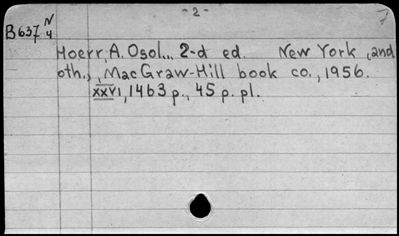 - 2 -
7
B637 N/4
Hoerr, A. Osol... 2-d ed. New York, and
oth., MacGraw-Hill book co., 1956.
XXVI, 1463 p., 45 p. pl.